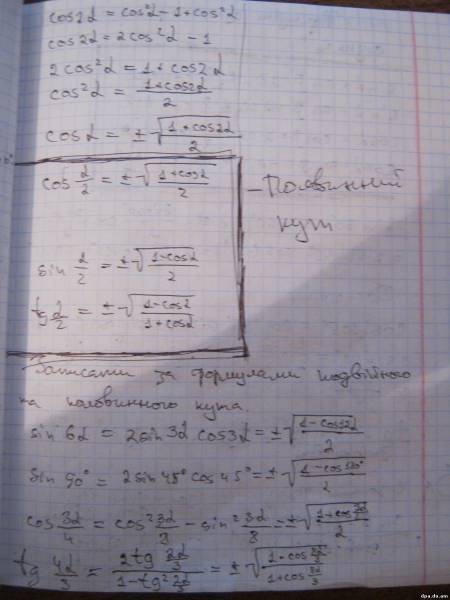 cos2α = cos²α - 1 + cos²α
cos2α = 2cos²α - 1
2cos²α = 1 + cos2α
cos²α = (1+cos2α)/2
cosα = ±√((1+cos2α)/2)
cos α/2 = ±√((1+cosα)/2)
- Половинний
кут
sin α/2 = ±√((1-cosα)/2)
tg α/2 = ±√((1-cosα)/(1+cosα))
Записати за формулами подвійного
та половинного кута.
sin 6α = 2sin3α cos3α = ±√((1-cos12α)/2)
sin 90° = 2sin45° cos45° = ±√((1-cos180°)/2)
cos 3α/4 = cos² 3α/8 - sin² 3α/8 = ±√((1+cos 3α/2)/2)
tg 4α/3 = (2tg 2α/3)/(1-tg² 2α/3) = ±√((1-cos 8α/3)/(1+cos 8α/3))
dpa.da.am